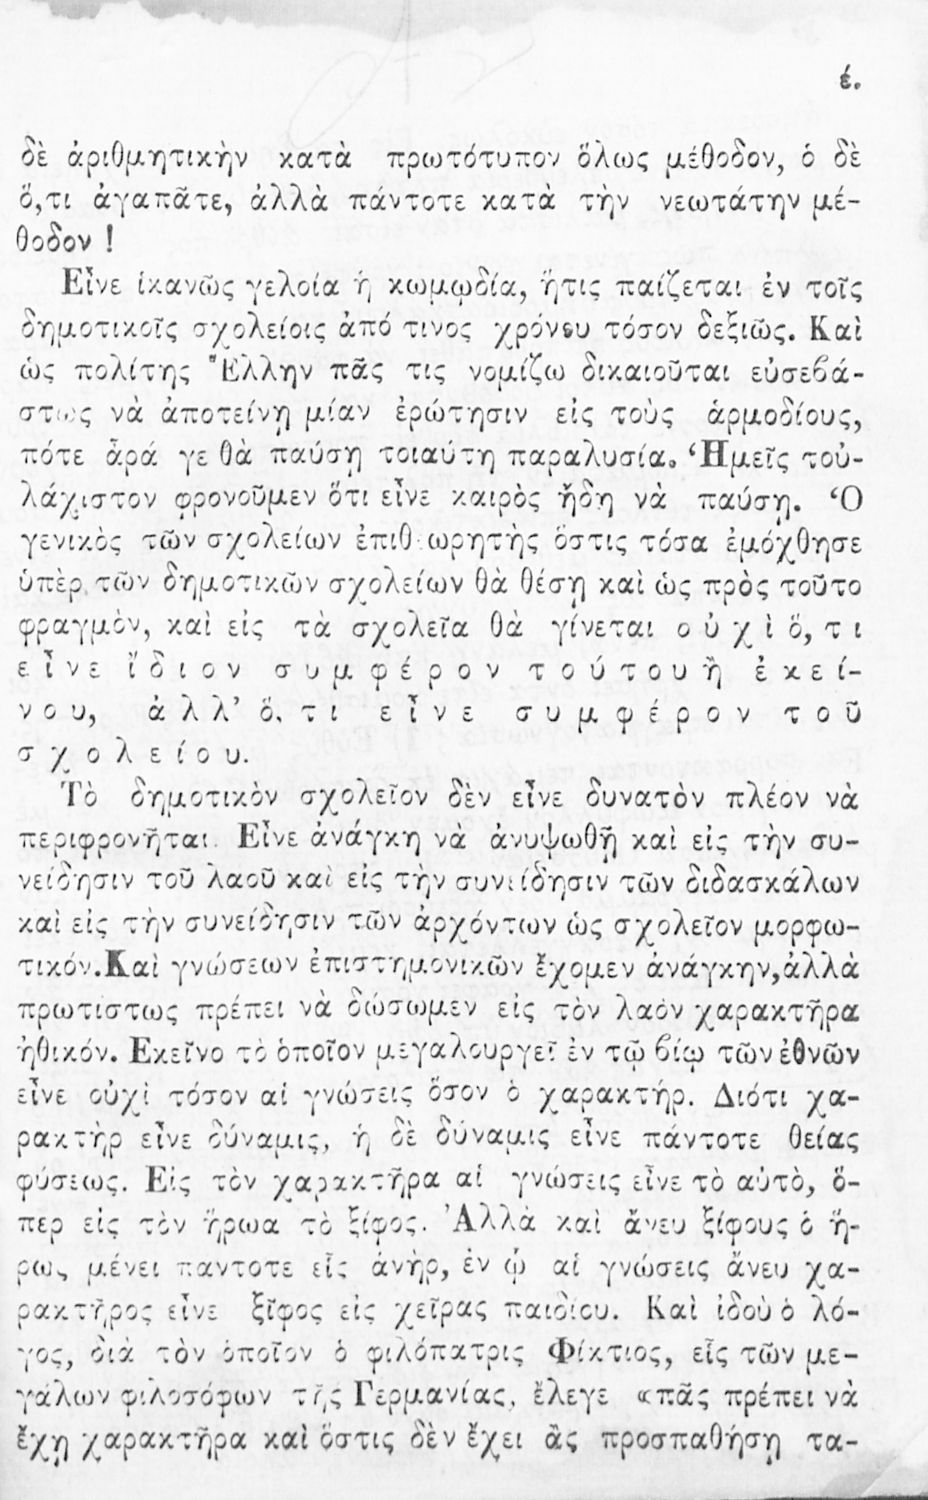 έ.
δὲ ἀριθμητικὴν κατὰ πρωτότυπον ὅλως μέθοδον, ὁ δὲ
ὅ,τι ἀγαπᾶτε, ἀλλὰ πάντοτε κατὰ τὴν νεωτάτην μέ-
θοδον !
Εἶνε ἱκανῶς γελοία ἡ κωμῳδία, ἥτις παίζεται ἐν τοῖς
δημοτικοῖς σχολείοις ἀπό τινος χρόνου τόσον δεξιῶς. Καὶ
ὡς πολίτης Ἕλλην πᾶς τις νομίζω δικαιοῦται εὐσεβά-
στως νὰ ἀποτείνῃ μίαν ἐρώτησιν εἰς τοὺς ἁρμοδίους,
πότε ἆρά γε θὰ παύσῃ τοιαύτη παραλυσία. Ἡμεῖς τοὐ-
λάχιστον φρονοῦμεν ὅτι εἶνε καιρὸς ἤδη νὰ παύσῃ. Ὁ
γενικὸς τῶν σχολείων ἐπιθεωρητὴς ὅστις τόσα ἐμόχθησε
ὑπὲρ τῶν δημοτικῶν σχολείων θὰ θέσῃ καὶ ὡς πρὸς τοῦτο
φραγμὸν, καὶ εἰς τὰ σχολεῖα θὰ γίνεται οὐχὶ ὅ,τι
εἶνε ἴδιον συμφέρον τούτου ἢ ἐκεί-
νου, ἀλλ' ὅ,τι εἶνε συμφέρον τοῦ
σχολείου.
Τὸ δημοτικὸν σχολεῖον δὲν εἶνε δυνατὸν πλέον νὰ
περιφρονῆται. Εἶνε ἀνάγκη νὰ ἀνυψωθῇ καὶ εἰς τὴν συ-
νείδησιν τοῦ λαοῦ καὶ εἰς τὴν συνείδησιν τῶν διδασκάλων
καὶ εἰς τὴν συνείδησιν τῶν ἀρχόντων ὡς σχολεῖον μορφω-
τικόν. Καὶ γνώσεων ἐπιστημονικῶν ἔχομεν ἀνάγκην, ἀλλὰ
πρωτίστως πρέπει νὰ δώσωμεν εἰς τὸν λαὸν χαρακτῆρα
ἠθικόν. Ἐκεῖνο τὸ ὁποῖον μεγαλουργεῖ ἐν τῷ βίῳ τῶν ἐθνῶν
εἶνε οὐχὶ τόσον αἱ γνώσεις ὅσον ὁ χαρακτήρ. Διότι χα-
ρακτὴρ εἶνε δύναμις, ἡ δὲ δύναμις εἶνε πάντοτε θείας
φύσεως. Εἰς τὸν χαρακτῆρα αἱ γνώσεις εἶνε τὸ αὐτὸ, ὅ-
περ εἰς τὸν ἥρωα τὸ ξίφος. Ἀλλὰ καὶ ἄνευ ξίφους ὁ ἥ-
ρως μένει πάντοτε εἷς ἀνὴρ, ἐν ᾧ αἱ γνώσεις ἄνευ χα-
ρακτῆρος εἶνε ξῖφος εἰς χεῖρας παιδίου. Καὶ ἰδοὺ ὁ λό-
γος, διὰ τὸν ὁποῖον ὁ φιλόπατρις Φίκτιος, εἷς τῶν με-
γάλων φιλοσόφων τῆς Γερμανίας, ἔλεγε «πᾶς πρέπει νὰ
ἔχῃ χαρακτῆρα καὶ ὅστις δὲν ἔχει ἂς προσπαθήσῃ τα-